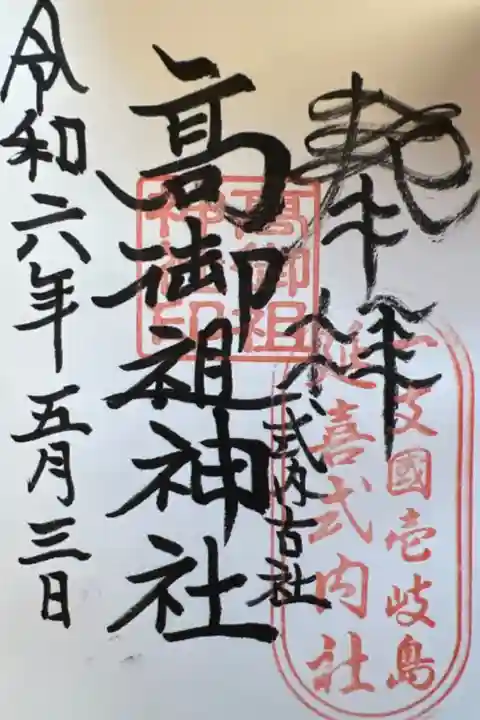 奉拝
一支國壱岐島
延喜式内社
式内古社
髙御祖神社
髙御祖
神社印
令和六年五月三日